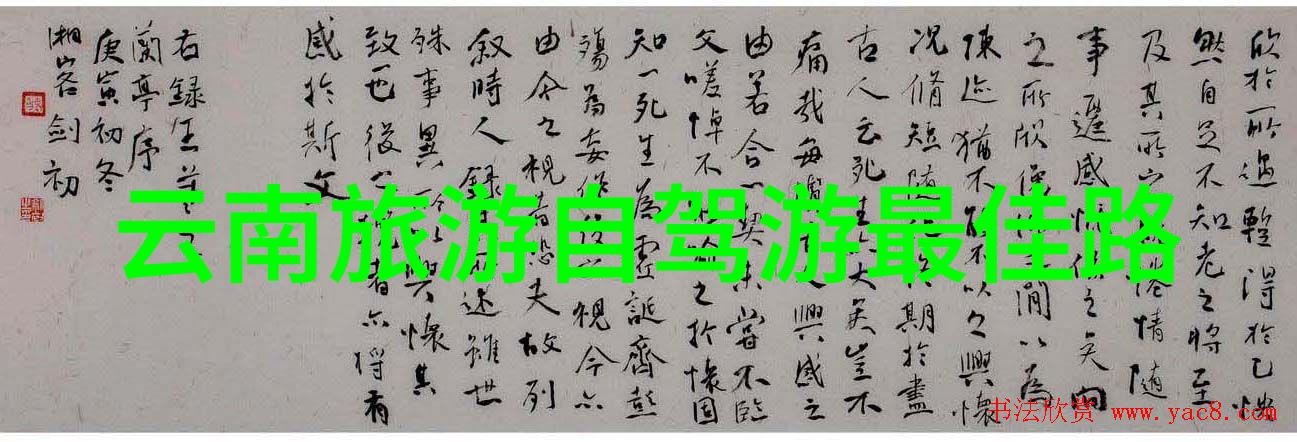 欣於所遇蹔得於己怏
然自足不知老之將至
及其所之情隨
事遷感慨係之矣向
之所欣俛之間以為
陳迹猶不能不以之興懷
況脩短隨終期於盡
古人云死生大矣豈不
痛哉每興感之
由若合一契未嘗不臨
文嗟悼不之於懷固
知一死生為虛誕齊彭
殤為妄作後視今亦
由今之視昔悲夫故列
敘時人錄其所述雖世
殊事異所以興懷其
致一也後之者亦將有
感於斯文
右錄王羲之
蘭亭序
庚寅初冬
湘客劍初
云南旅游自驾游最佳路
书法欣赏 www.yac8.com